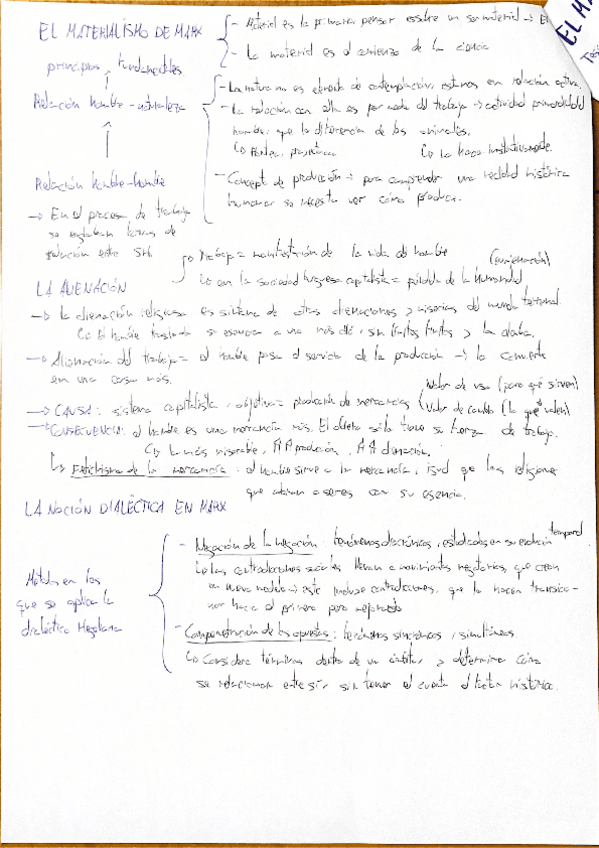 EL MATERIALISMO DE MARX
principios fundamentales
- Material es lo primario pensar sobre un ser material →
- Lo material es el comienzo de la ciencia
Relación hombre-naturaleza
- La natura no es elemento de contemplación, estamos en relación activa.
- La relación con ella es por medio del trabajo → actividad primordial del
hombre, que lo diferencia de los animales.
↳ la hace
- Concepto de producción → para comprender una realidad histórica
humana se necesita ver cómo produce.
Relación hombre-hombre
→ En el proceso de trabajo
se establecen formas de
relación entre SH.
Trabajo = manifestación de la vida del hombre
↳ en la sociedad burguesa capitalista = pérdida de la Humanidad (enajenación)
LA ALIENACIÓN
→ La alienación religiosa es síntoma de otras alienaciones y miserias del mundo terrenal.
↳ El hombre traslada su esencia a un más allá, sin límites y la alaba.
→ Alienación del trabajo = el hombre pasa al servicio de la producción → lo convierte
en una cosa más.
→ CAUSA: sistema capitalista, objetivo = producción de mercancías
Valor de uso (para qué sirven)
Valor de cambio (lo que valen)
→ CONSECUENCIA: el hombre es una mercancía más. El obrero sólo tiene su fuerza de trabajo.
↳ más miserable, ↑↑ producción, ↑↑ alienación.
↳ Fetichismo de la mercancía: el hombre sirve a la mercancía, igual que las religiones
que adoran a seres con su esencia.
LA NOCIÓN DIALÉCTICA EN MARX
Métodos en los
que se aplica la
dialéctica Hegeliana
- Negación de la negación: fenómenos diacrónicos, estudiados en su evolución temporal
↳ Las contradicciones sociales llevan a movimientos negatorios, que crean
un nuevo modelo → este produce contradicciones, que lo hacen transicio-
nar hacia el primero pero mejorado
- Compenetración de los opuestos: fenómenos sincrónicos, simultáneos.
↳ Considera términos dentro de un ámbito, y determina cómo
se relacionan entre sí, sin tener en cuenta el factor histórico.